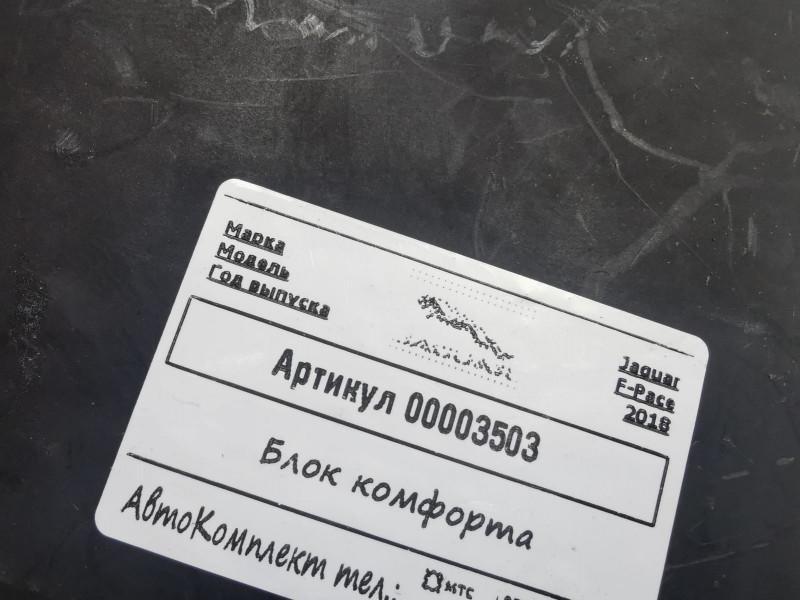 Марка
Модель
Год выпуска
JAGUAR
Jaguar
F-Pace
2018
Артикул 00003503
Блок комфорта
АвтоКомплект тел.:
мтс